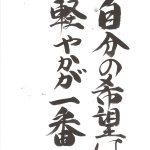 自分の希望は
軽やかが一番